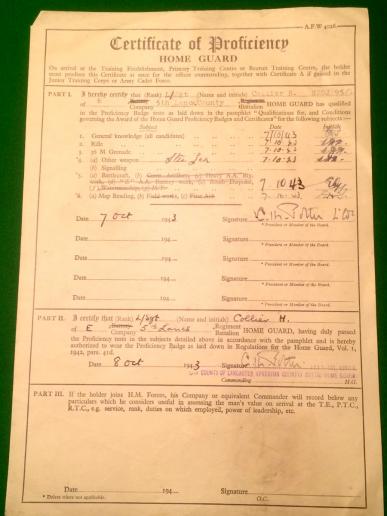 A.F.W 4026
Certificate of Proficiency
HOME GUARD
On arrival at the Training Establishment, Primary Training Centre or Recruit Training Centre, the holder
must produce this Certificate at once for the officer commanding, together with Certificate A if gained in the
Junior Training Corps or Army Cadet Force.
PART I. I hereby certify that (Rank) L/Sgt (Name and initials) Collier H.
E Battery Company 5th Lancs. County Regiment Battalion HOME GUARD has qualified
in the Proficiency Badge tests as laid down in the pamphlet "Qualifications for, and Conditions
governing the Award of the Home Guard Proficiency Badges and Certificates" for the following subjects:
Subject Date Initials
1. General knowledge (all candidates) 7/10/43
2. Rifle 7.10.43
3. 36 M Grenade 7.10.43
*4. (a) Other weapon Sten Gun 7.10.43
(b) Signalling
*5. (a) Battlecraft, (b) Coast Artillery, (c) Heavy A.A. Bty.
work, (d) "Z" A.A. Battery work, (e) Bomb Disposal,
(f) Watermanship, (g) M.T. 7.10.43
*6. (a) Map Reading, (b) Field works, (c) First Aid 7.10.43
Date 7 Oct 194 3 Signature C. W. Potter
* President or Member of the Board.
Date 194 Signature
* President or Member of the Board.
Date 194 Signature
* President or Member of the Board.
Date 194 Signature
* President or Member of the Board.
Date 194 Signature
* President or Member of the Board.
PART II. I certify that (Rank) L/Sgt (Name and initials) Collier H.
of E Battery Company 5th Lancs Regiment Battalion HOME GUARD, having duly passed
the Proficiency tests in the subjects detailed above in accordance with the pamphlet is hereby
authorized to wear the Proficiency Badge as laid down in Regulations for the Home Guard, Vol. 1,
1942, para. 41d.
Date 8 Oct 194 3 Signature C W Potter
COUNTY OF LANCASTER HOME GUARD
Commanding H.G.
PART III. If the holder joins H.M. Forces, his Company or equivalent Commander will record below any
particulars which he considers useful in assessing the man's value on arrival at the T.E., P.T.C.,
R.T.C., e.g. service, rank, duties on which employed, power of leadership, etc.
Date 194 Signature
* Delete where not applicable. O.C.